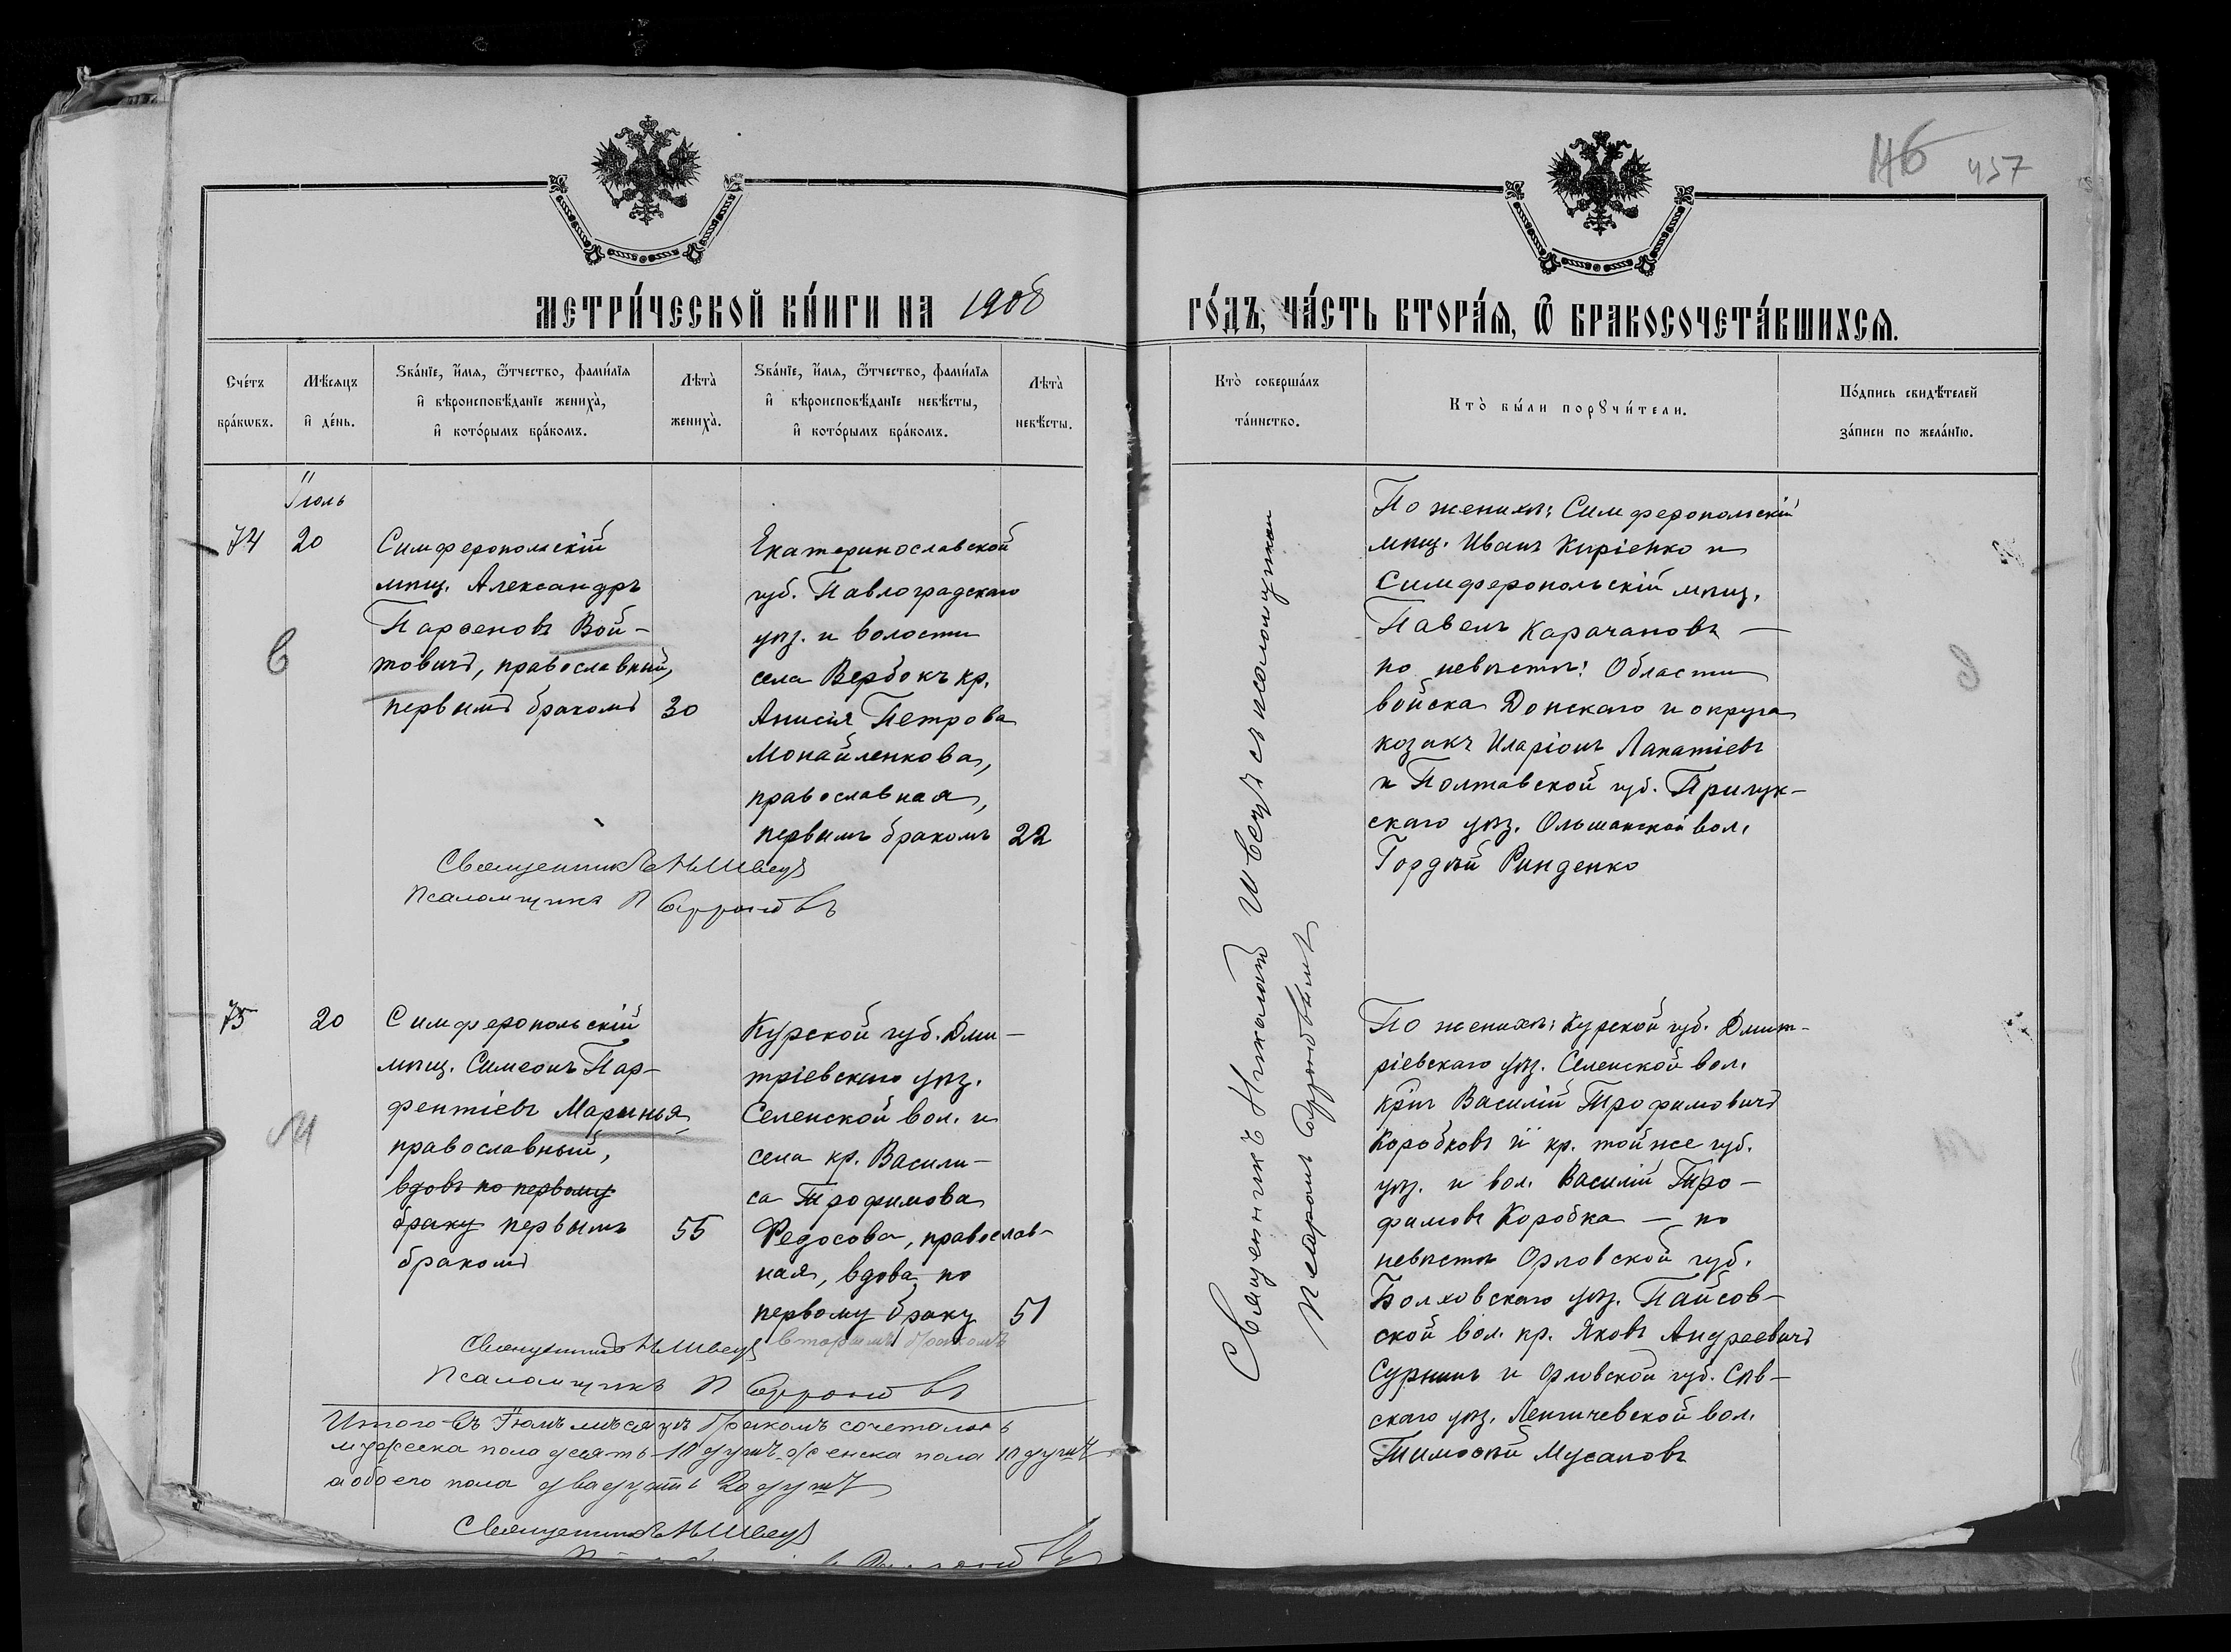 457
МЕТРИ́ЧЕСКОЙ КН́ИГИ НА 1908
ГО́ДЪ, ЧА́СТЬ ВТОРА́Я, Ѿ БРАКОСОЧЕТА́ВШИХСЯ.
Сче́тъ
бра́кѡвъ.
Мѣ́сяцъ
и҆ де́нь.
Ѕва́нїе, и҆́мя, ѻ҆́тчество, фами́лїя
и҆ вѣроисповѣ́данїе жениха̀,
и҆ кото́рымъ бра́комъ.
Лѣта̀
жениха̀.
Ѕва́нїе, и҆́мя, ѻ҆́тчество, фами́лїя
и҆ вѣроисповѣ́данїе невѣ́сты,
и҆ кото́рымъ бра́комъ.
Лѣта̀
невѣ́сты.
Кто̀ соверша́лъ
та́инство.
Кто̀ бы́ли порꙋчи́тели.
По́дпись свидѣ́телей
за́писи по жела́нїю.
Іюль
74
20
Симферопольскій
мѣщ. Александръ
Парѳеновъ Вой-
товичъ, православный,
первымъ бракомъ
30
Екатеринославской
губ. Павлоградскаго
уѣз. и волости
села Вербокъ кр.
Анисія Петрова
Монайленкова,
православная,
первымъ бракомъ
22
Священникъ Н Швецъ
Псаломщикъ П
По женихѣ: Симферопольскій
мѣщ. Иванъ Киріенко и
Симферопольскій мѣщ.
Павелъ Карачановъ —
по невѣстѣ: Области
войска Донскаго и округа
козакъ Иларіонъ Лапатіевъ
и Полтавской губ. Прилук-
скаго уѣз. Ольшанской вол.
Гордѣй Ринденко
Священникъ Николай Швецъ съ псаломщикомъ
Петромъ
75
20
Симферопольскій
мѣщ. Симеонъ Пар-
фентіевъ Маринья,
православный,
вдовъ по первому
браку первымъ
бракомъ
55
Курской губ. Дми-
тріевскаго уѣз.
Селенской вол. и
села кр. Васили-
са Трофимова
Федосова, православ-
ная, вдова по
первому браку
вторымъ бракомъ
51
Священникъ Н Швецъ
Псаломщикъ П
По женихѣ: Курской губ. Дмит-
ріевскаго уѣз. Селенской вол.
кр-нъ Василій Трофимовичъ
Коробковъ и кр. той же губ.
уѣз. и вол. Василій Тро-
фимовъ Коробка — по
невѣстѣ Орловской губ.
Болховскаго уѣз. Пайсов-
ской вол. кр. Яковъ Андреевичъ
Суринъ и Орловской губ. Сѣв-
скаго уѣз. Ленгичевской вол.
Тимоѳѣй Мусаловъ
Итого въ Іюлѣ мѣсяцѣ бракомъ сочеталось
мужеска пола десять 10 душъ женска пола 10 душъ
а обоего пола двадцать 20 душъ
Священникъ Н Швецъ